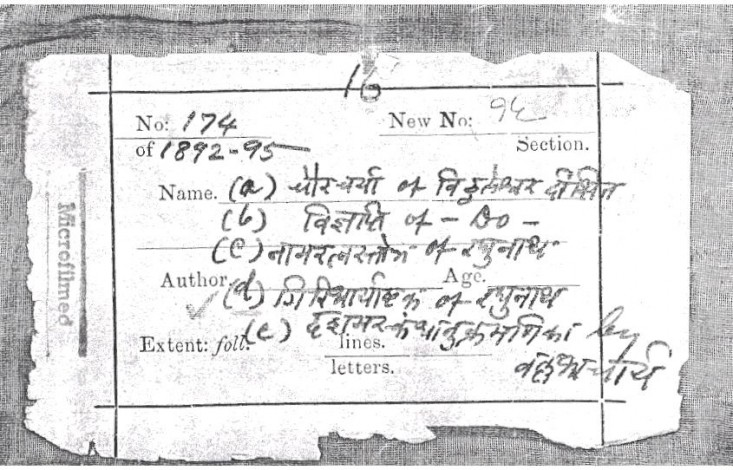 16
No: 174 New No: 94
of 1892-95 Section.
Name. (a) चौरचर्या of विठ्ठलेश्वर दीक्षित
(b) विज्ञप्ति of - Do -
(c) नामरत्नस्तोत्र of रघुनाथ
Author. Age.
(d) गिरिधार्याष्टक of रघुनाथ
(e) दशमस्कंधानुक्रमणिका by
Extent: foll. lines.
वल्लभाचार्य
letters.
Microfilmed